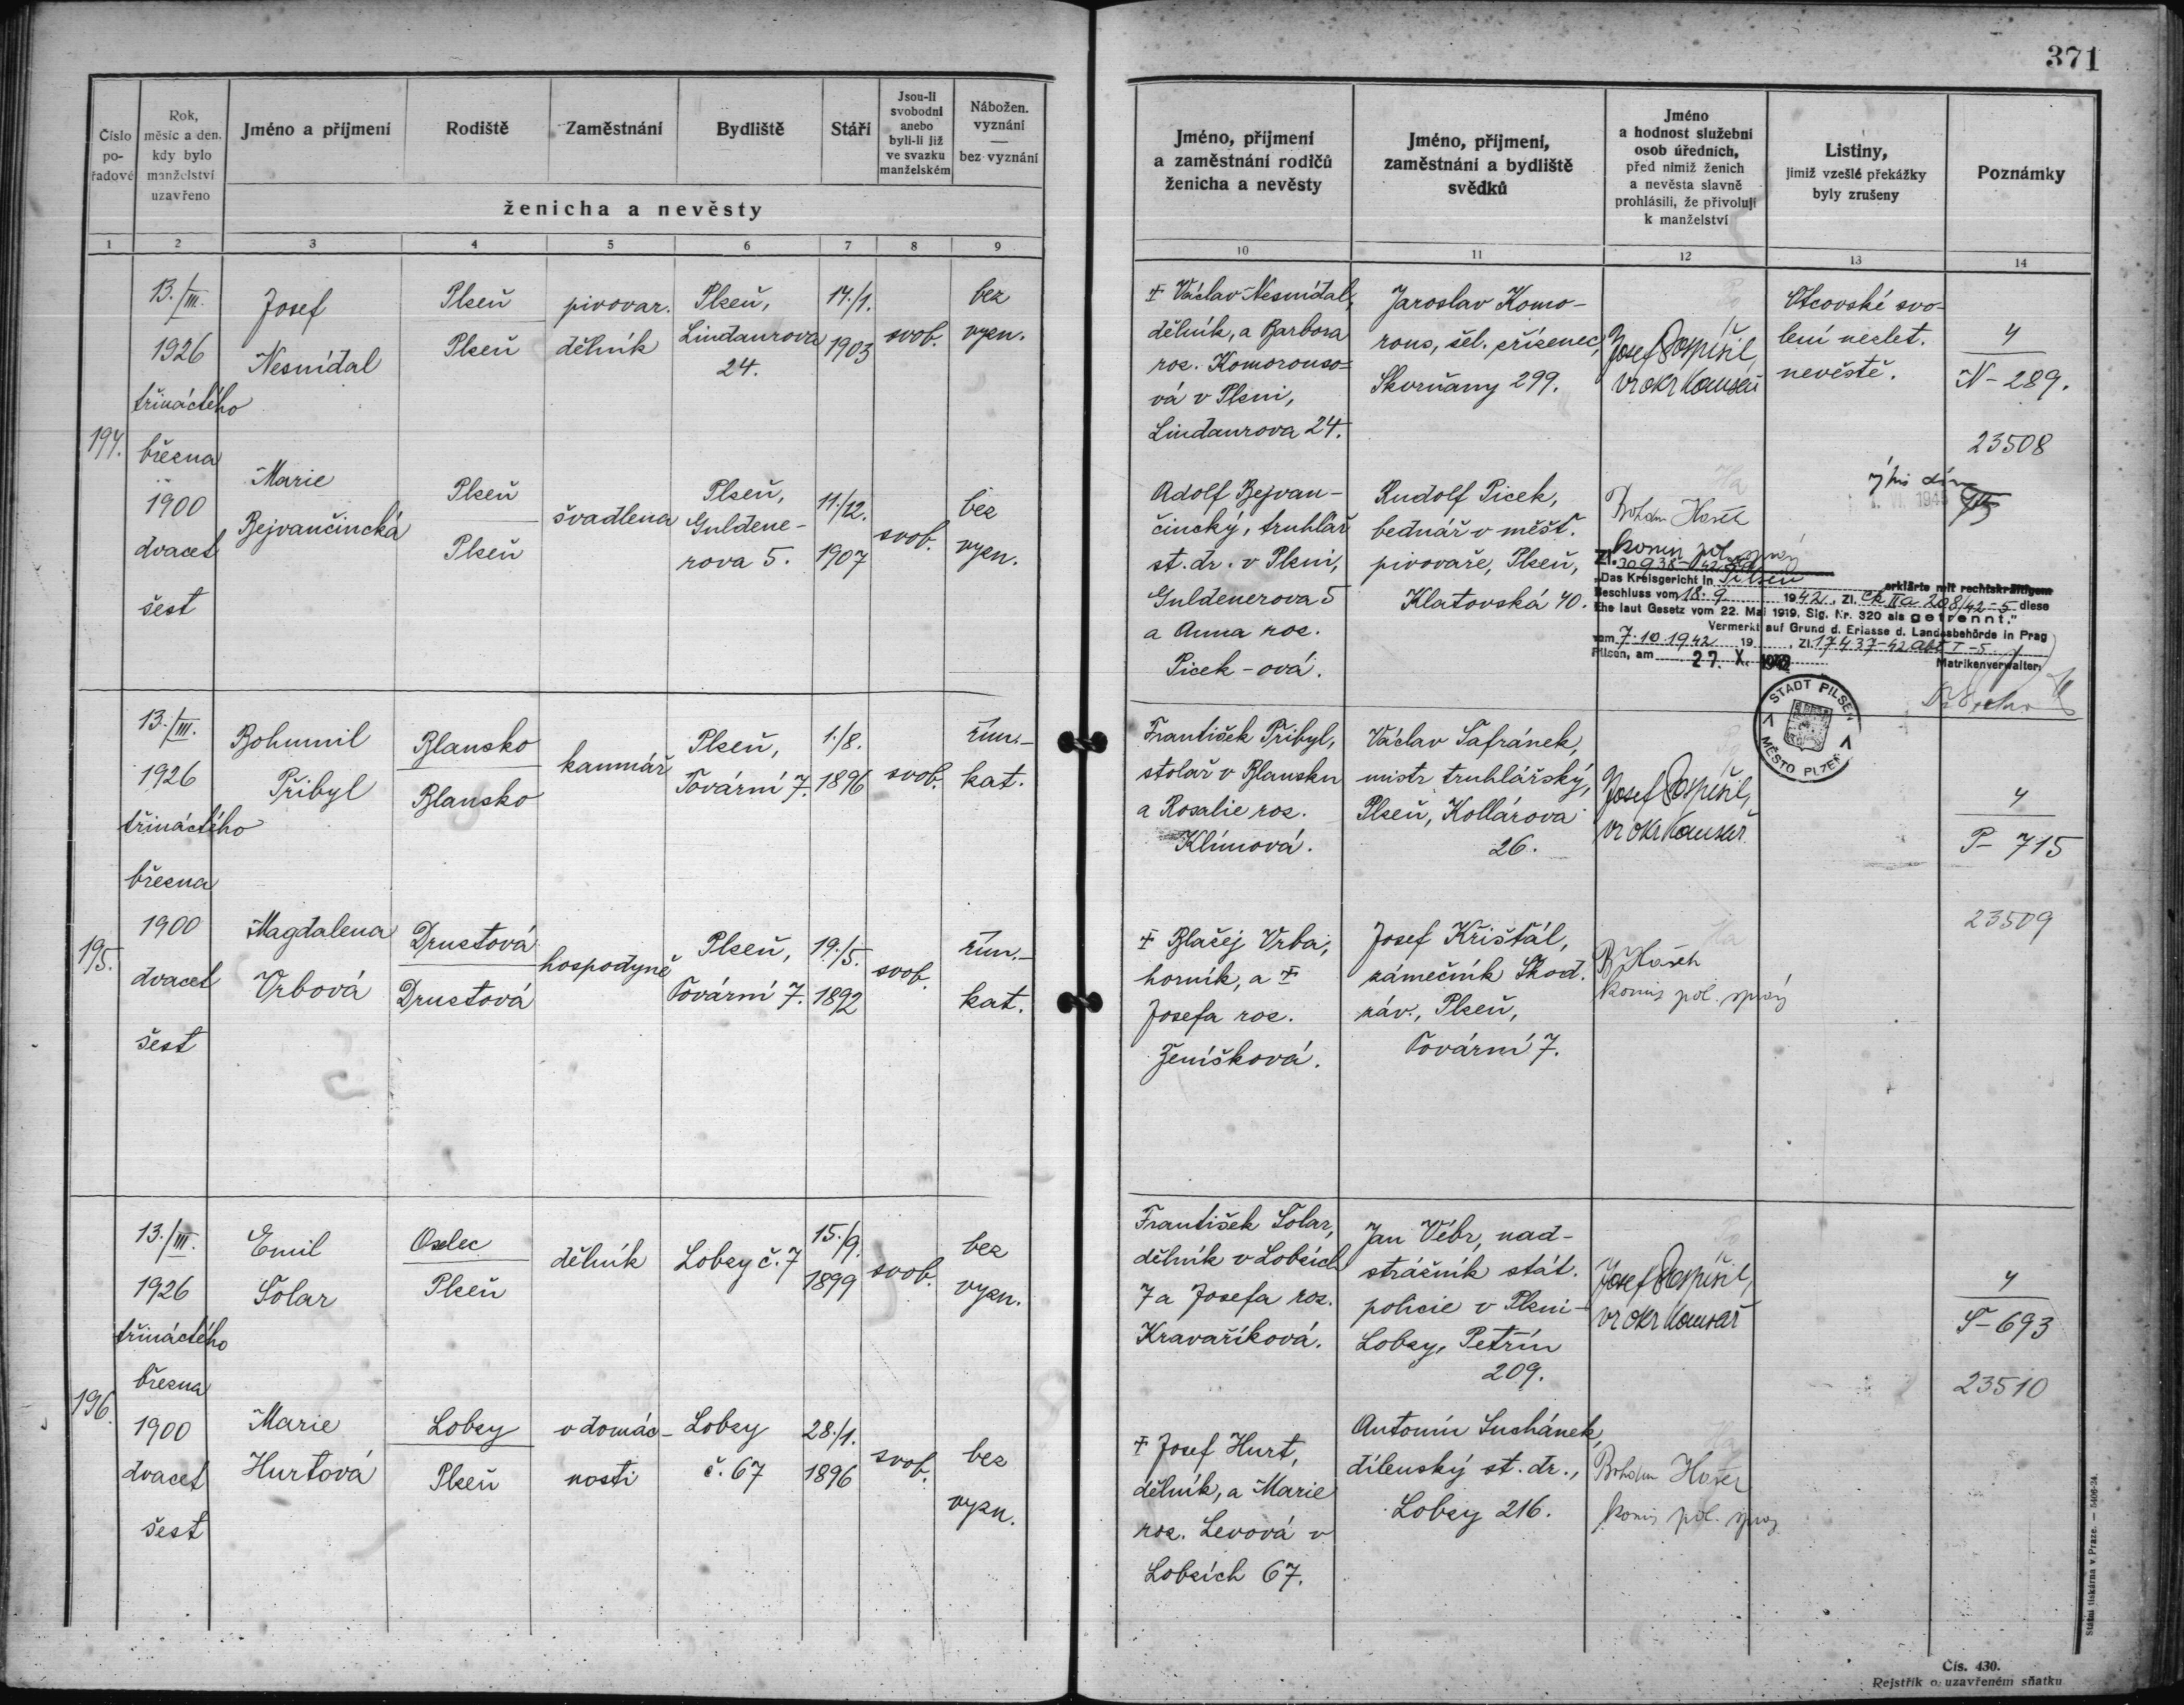 371
Číslo
po-
řadové
Rok,
měsíc a den,
kdy bylo
manželství
uzavřeno
Jméno a příjmení
Rodiště
Zaměstnání
Bydliště
Stáří
Jsou-li
svobodni
anebo
byli-li již
ve svazku
manželském
Nábožen.
vyznání
—
bez vyznání
ženicha a nevěsty
Jméno, příjmení
a zaměstnání rodičů
ženicha a nevěsty
Jméno, příjmení,
zaměstnání a bydliště
svědků
Jméno
a hodnost služební
osob úředních,
před nimiž ženich
a nevěsta slavně
prohlásili, že přivolují
k manželství
Listiny,
jimiž vzešlé překážky
byly zrušeny
Poznámky
1 2 3 4 5 6 7 8 9
10 11 12 13 14
194.
13./III.
1926
třináctého
března
1900
dvacet
šest
Josef
Nesnídal
Plzeň
Plzeň
pivovar.
dělník
Plzeň,
Lindaurova
24.
14./1.
1903
svob.
bez
vyzn.
Marie
Bejvančincká
Plzeň
Plzeň
švadlena
Plzeň,
Guldene-
rova 5.
11./12.
1907
svob.
bez
vyzn.
‡ Václav Nesnídal,
dělník, a Barbora
roz. Komorouso-
vá v Plzni,
Lindaurova 24.
Jaroslav Komo-
rous, žel. zřízenec,
Skvrňany 299.
Josef Pospíšil,
vr okr komisař
Otcovské svo-
lení nezlet.
nevěstě.
4
N-289.
23508
Adolf Bejvan-
čincký, truhlář
st. dr. v Plzni,
Guldenerova 5
a Anna roz.
Picek-ová.
Rudolf Picek,
bednář v měšť.
pivovaře, Plzeň,
Klatovská 40.
Zl. 30938-42
"Das Kreisgericht in Pilsen erklärte mit rechtskräftigem
Beschluss vom 18.9. 1942, Zl. Ck IIa 208/42-5 diese
Ehe laut Gesetz vom 22. Mai 1919, Slg. Nr. 320 als getrennt."
Vermerkt auf Grund d. Erlasse d. Landesbehörde in Prag
vom 7.10.1942 19 , Zl. 17437-42 Abt I-5
Pilsen, am 27. X. 1942 Matrikenverwalter:
STADT PILSEN
MĚSTO PLZEŇ
195.
13./III.
1926
třináctého
března
1900
dvacet
šest
Bohumil
Přibyl
Blansko
Blansko
kamnář
Plzeň,
Tovární 7.
1./8.
1896
svob.
řím.-
kat.
Magdalena
Vrbová
Drustová
Drustová
hospodyně
Plzeň,
Tovární 7.
19./5.
1892
svob.
řím.-
kat.
František Přibyl,
stolař v Blansku
a Rosalie roz.
Klímová.
Václav Šafránek,
mistr truhlářský,
Plzeň, Kollárova
26.
Josef Pospíšil,
vr okr komisař
4
P-715
23509
‡ Blažej Vrba,
horník, a ‡
Josefa roz.
Ženíšková.
Josef Křišťál,
zámečník Škod.
záv., Plzeň,
Tovární 7.
196.
13./III.
1926
třináctého
března
1900
dvacet
šest
Emil
Šolar
Oselec
Plzeň
dělník
Lobzy č. 7
15./9.
1899
svob.
bez
vyzn.
Marie
Hurtová
Lobzy
Plzeň
v domác-
nosti
Lobzy
č. 67
28./1.
1896
svob.
bez
vyzn.
František Šolar,
dělník v Lobzích
7 a Josefa roz.
Kravaříková.
Jan Vébr, nad-
strážník stát.
policie v Plzni-
Lobzy, Petřín
209.
Josef Pospíšil,
vr okr komisař
4
Š-693
23510
‡ Josef Hurt,
dělník, a Marie
roz. Levová v
Lobzích 67.
Antonín Suchánek,
dílenský st. dr.,
Lobzy 216.
Státní tiskárna v Praze. — 5406-24.
Čís. 430.
Rejstřík o uzavřeném sňatku